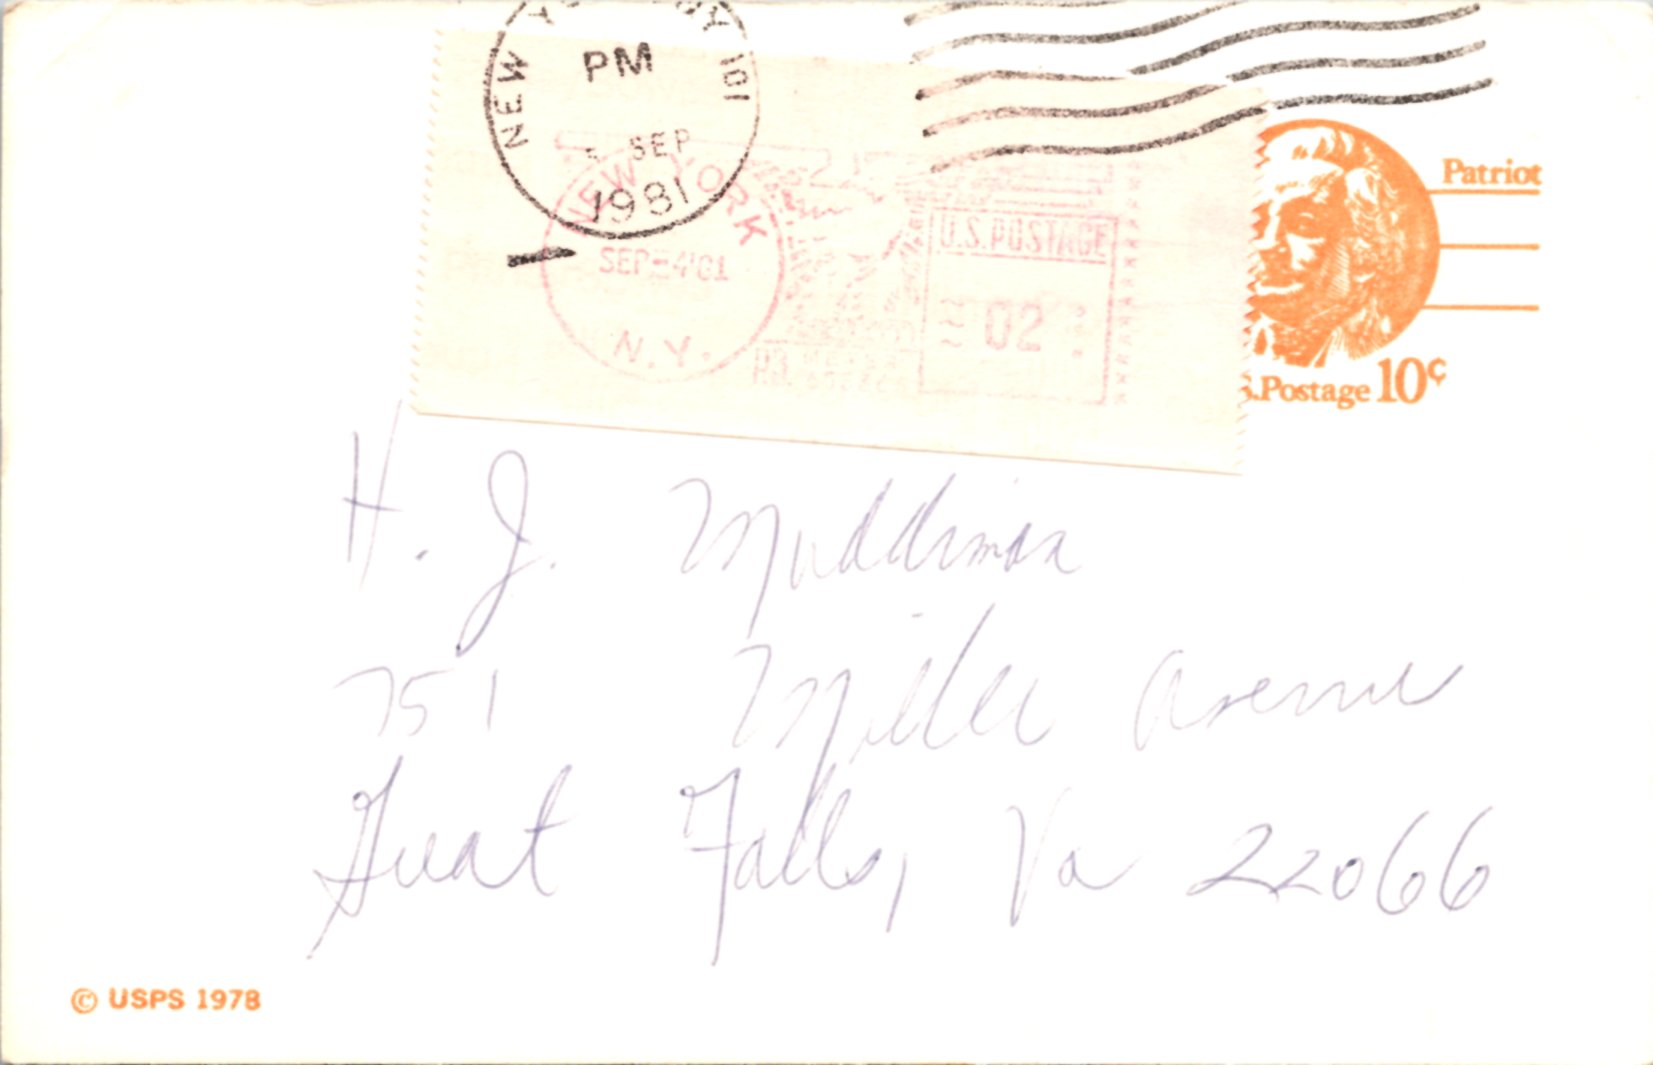 NEW Y
PM
SEP
1981
101
NEW YORK
SEP-4'81
N.Y.
U.S.POSTAGE
02
Patriot
.Postage 10¢
H. J. Muddiman
751 Miller Avenue
Great Falls, Va 22066
© USPS 1978